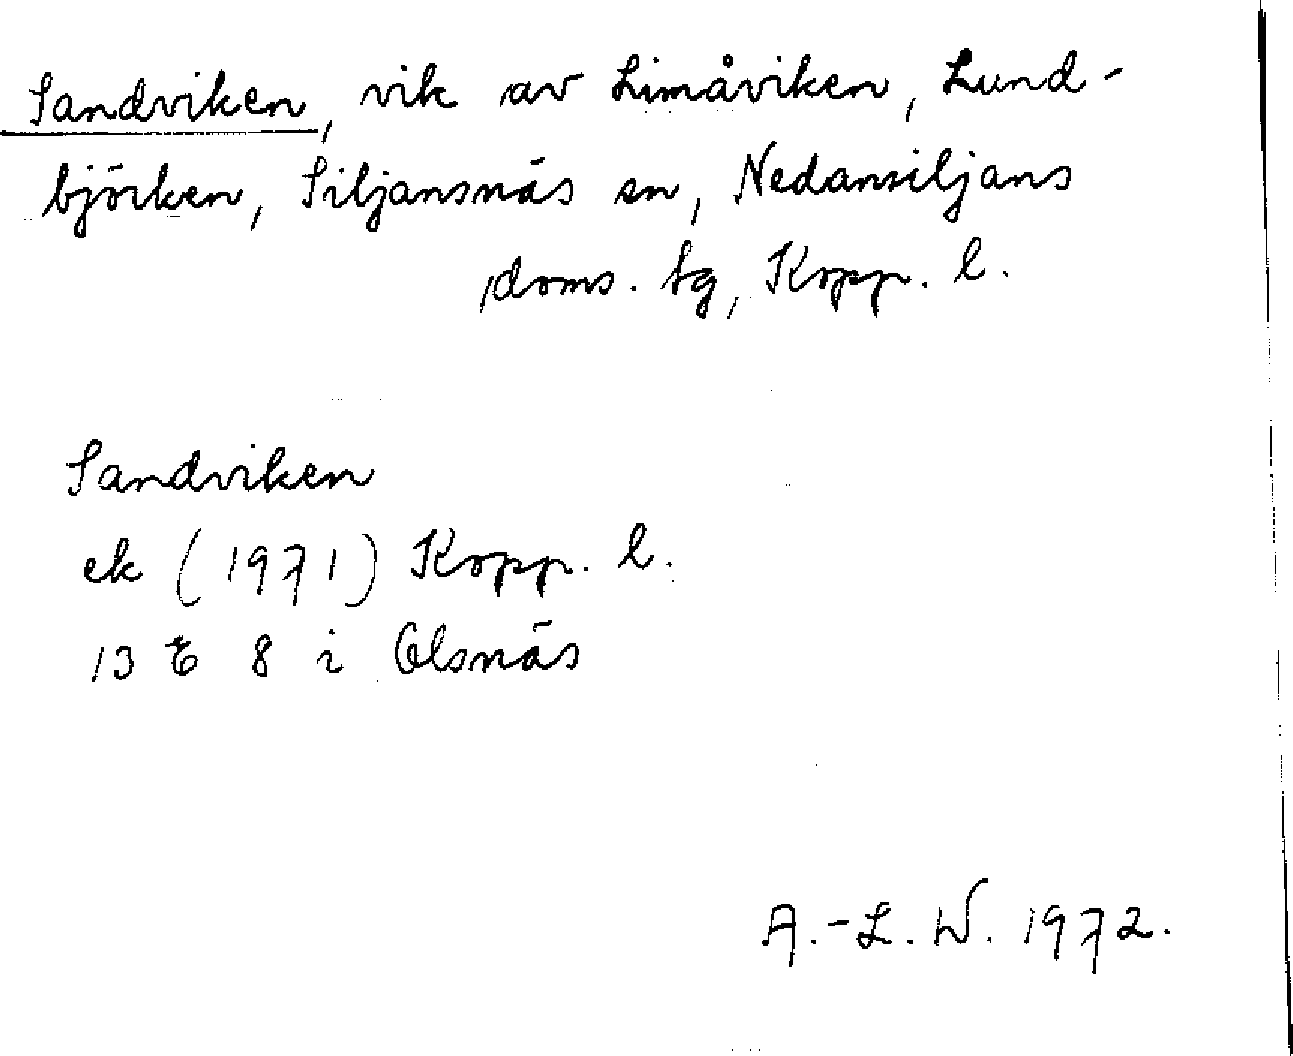 Sandviken, vik av Limåviken, Lund-
björken, Siljansnäs sn, Nedansiljans
doms. tg, Kopp. l.
Sandviken
ek (1971) Kopp. l.
13 E 8 i Olsnäs
A.-L. W. 1972.